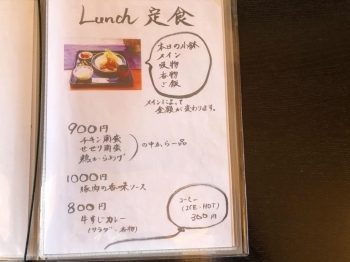 Lunch 定食
本日の小鉢
メイン
吸物
香物
ご飯
メインによって
金額が変わります。
900円
チキン南蛮
せせり南蛮
鶏から
の中から一品
1000円
豚肉の香味ソース
800円
牛すじカレー
(サラダ・香物)
コーヒー
(ICE・HOT)
300円